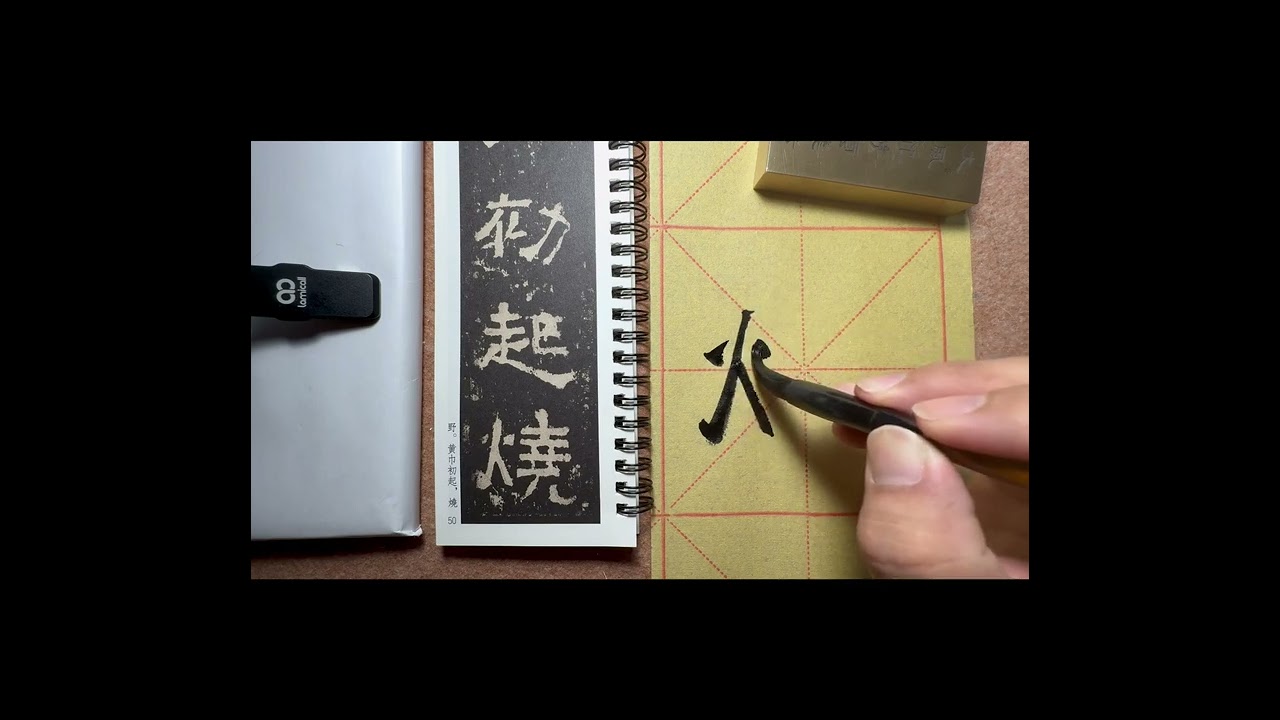 lamicall
初
起
燒
野。黄巾初起，燒
50
火